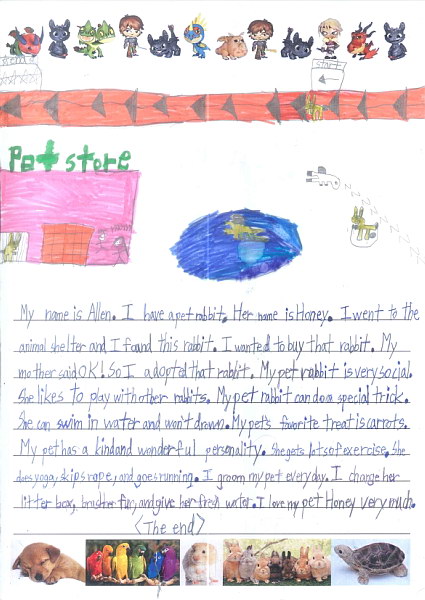 start
Pet store
My name is Allen. I have a pet rabbit. Her name is Honey. I went to the
animal shelter and I found this rabbit. I wanted to buy that rabbit. My
mother said OK! So I adopted that rabbit. My pet rabbit is very social.
She likes to play with other rabbits. My pet rabbit can do a special trick.
She can swim in water and won't drown. My pet's favorite treat is carrots.
My pet has a kind and wonderful personality. She gets lots of exercise. She
does yoga, skips rope, and goes running. I groom my pet every day. I change her
litter box, brush her fur, and give her fresh water. I love my pet Honey very much.
<The end>